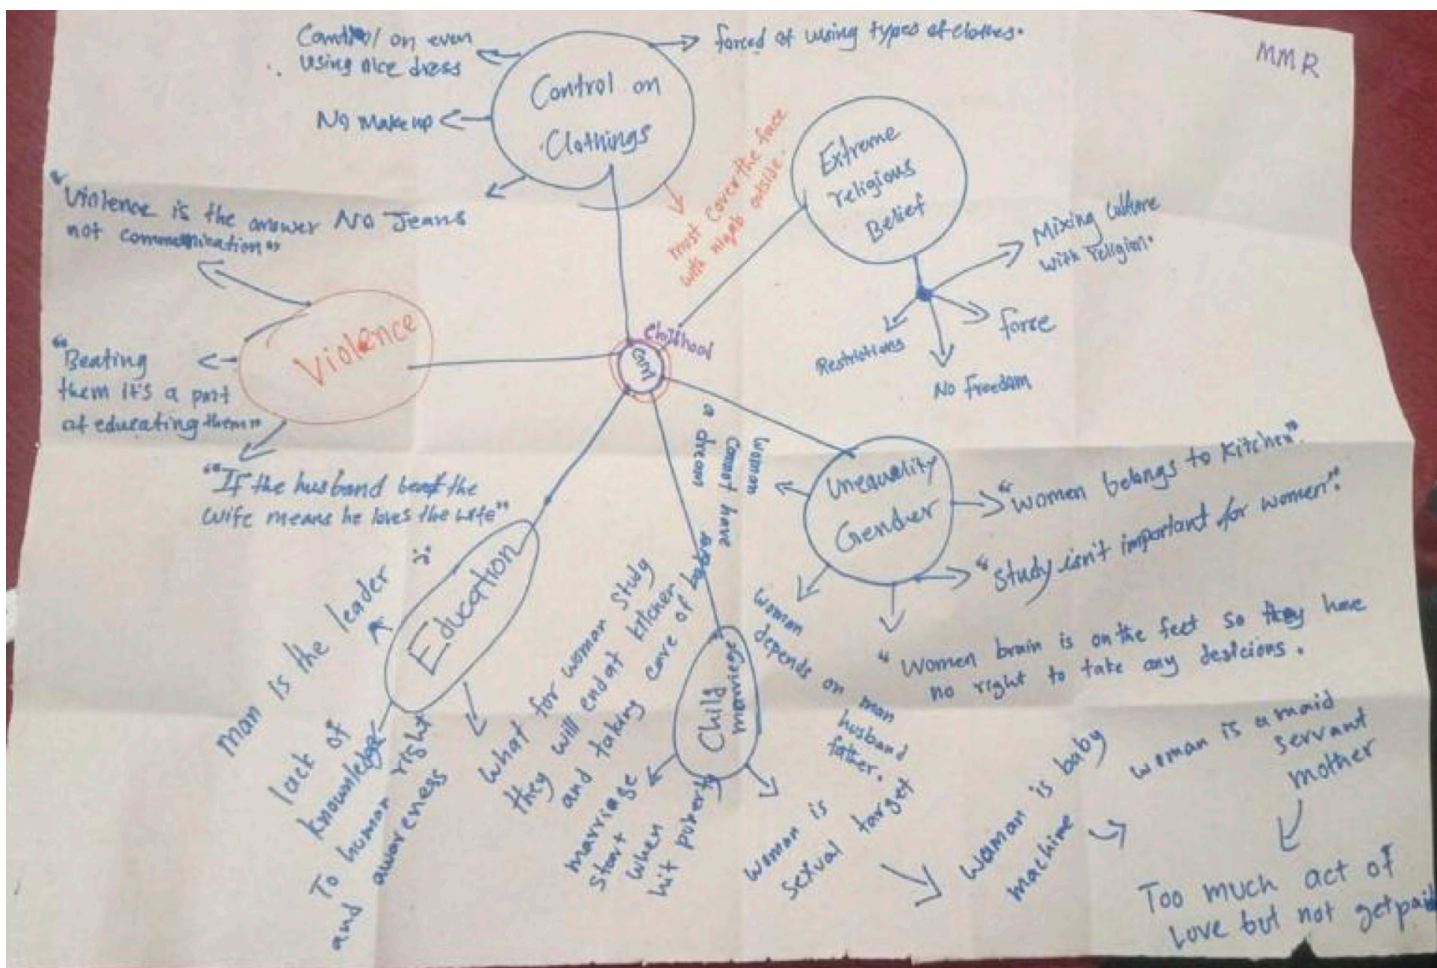 MMR
Control on even
using nice dress
No Makeup
No Jeans
Control on
Clothings
forced of using types of clothes.
most cover the face
with niqab outside.
Extreme
religious
Belief
Mixing culture
with religion.
force
No Freedom
Restrictions
"Violence is the answer
not communication"
Violence
"Beating
them it's a part
of educating them"
"If the husband beat the
wife means he loves the wife"
Childhood
Girl
Unequality
Gender
woman
cannot have
a dream
"women belongs to kitchen".
"study isn't important for women".
"Women brain is on the feet so they have
no right to take any desicions.
woman
depends on man
husband
father.
Education
man is the leader
lack of
knowledge
To human right
and awareness
what for woman study
they will end at kitchen
and taking care of
Child
marriege
marriage
start
when
hit puberty
woman is
sexual target
woman is baby
machine
woman is a maid
servant
mother
Too much act of
Love but not get paid